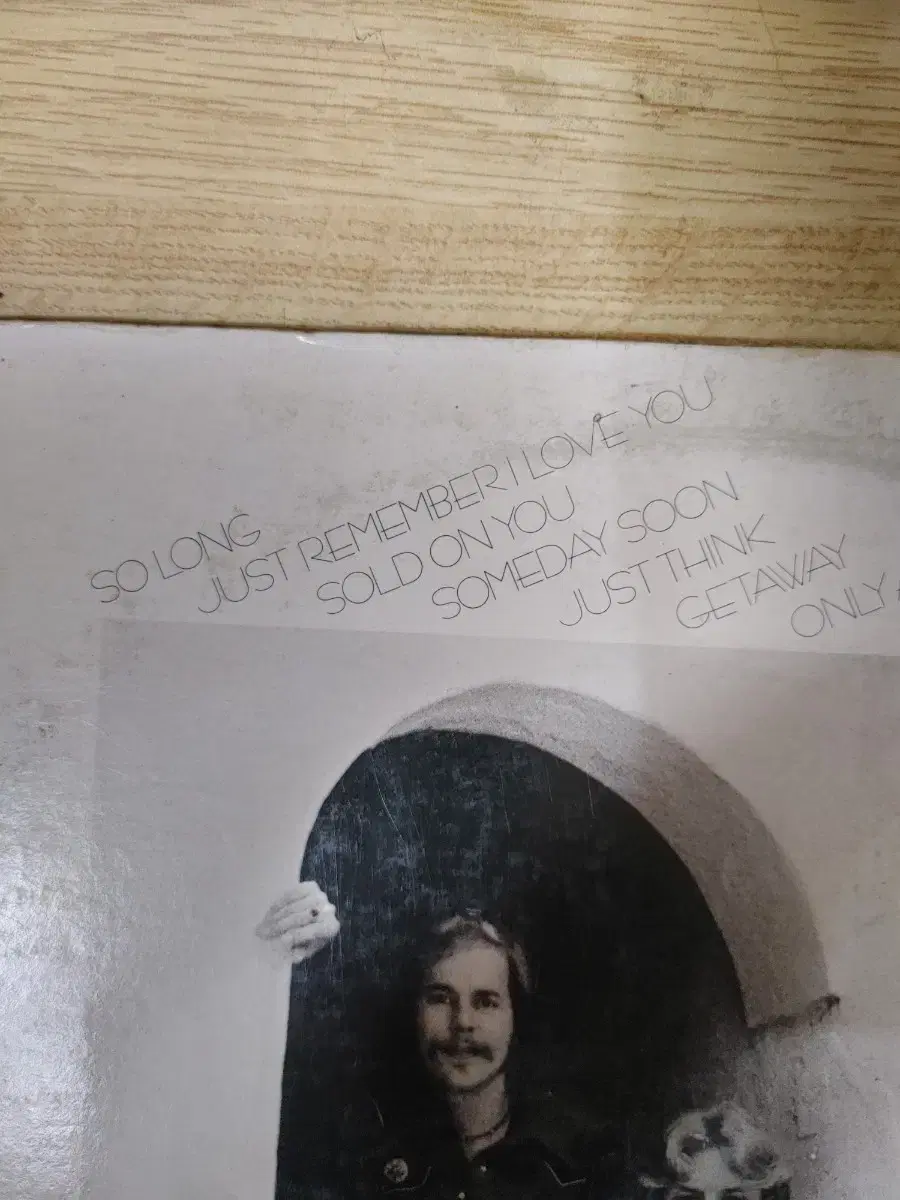 SO LONG
JUST REMEMBER I LOVE YOU
SOLD ON YOU
SOMEDAY SOON
JUST THINK
GETAWAY
ONLY